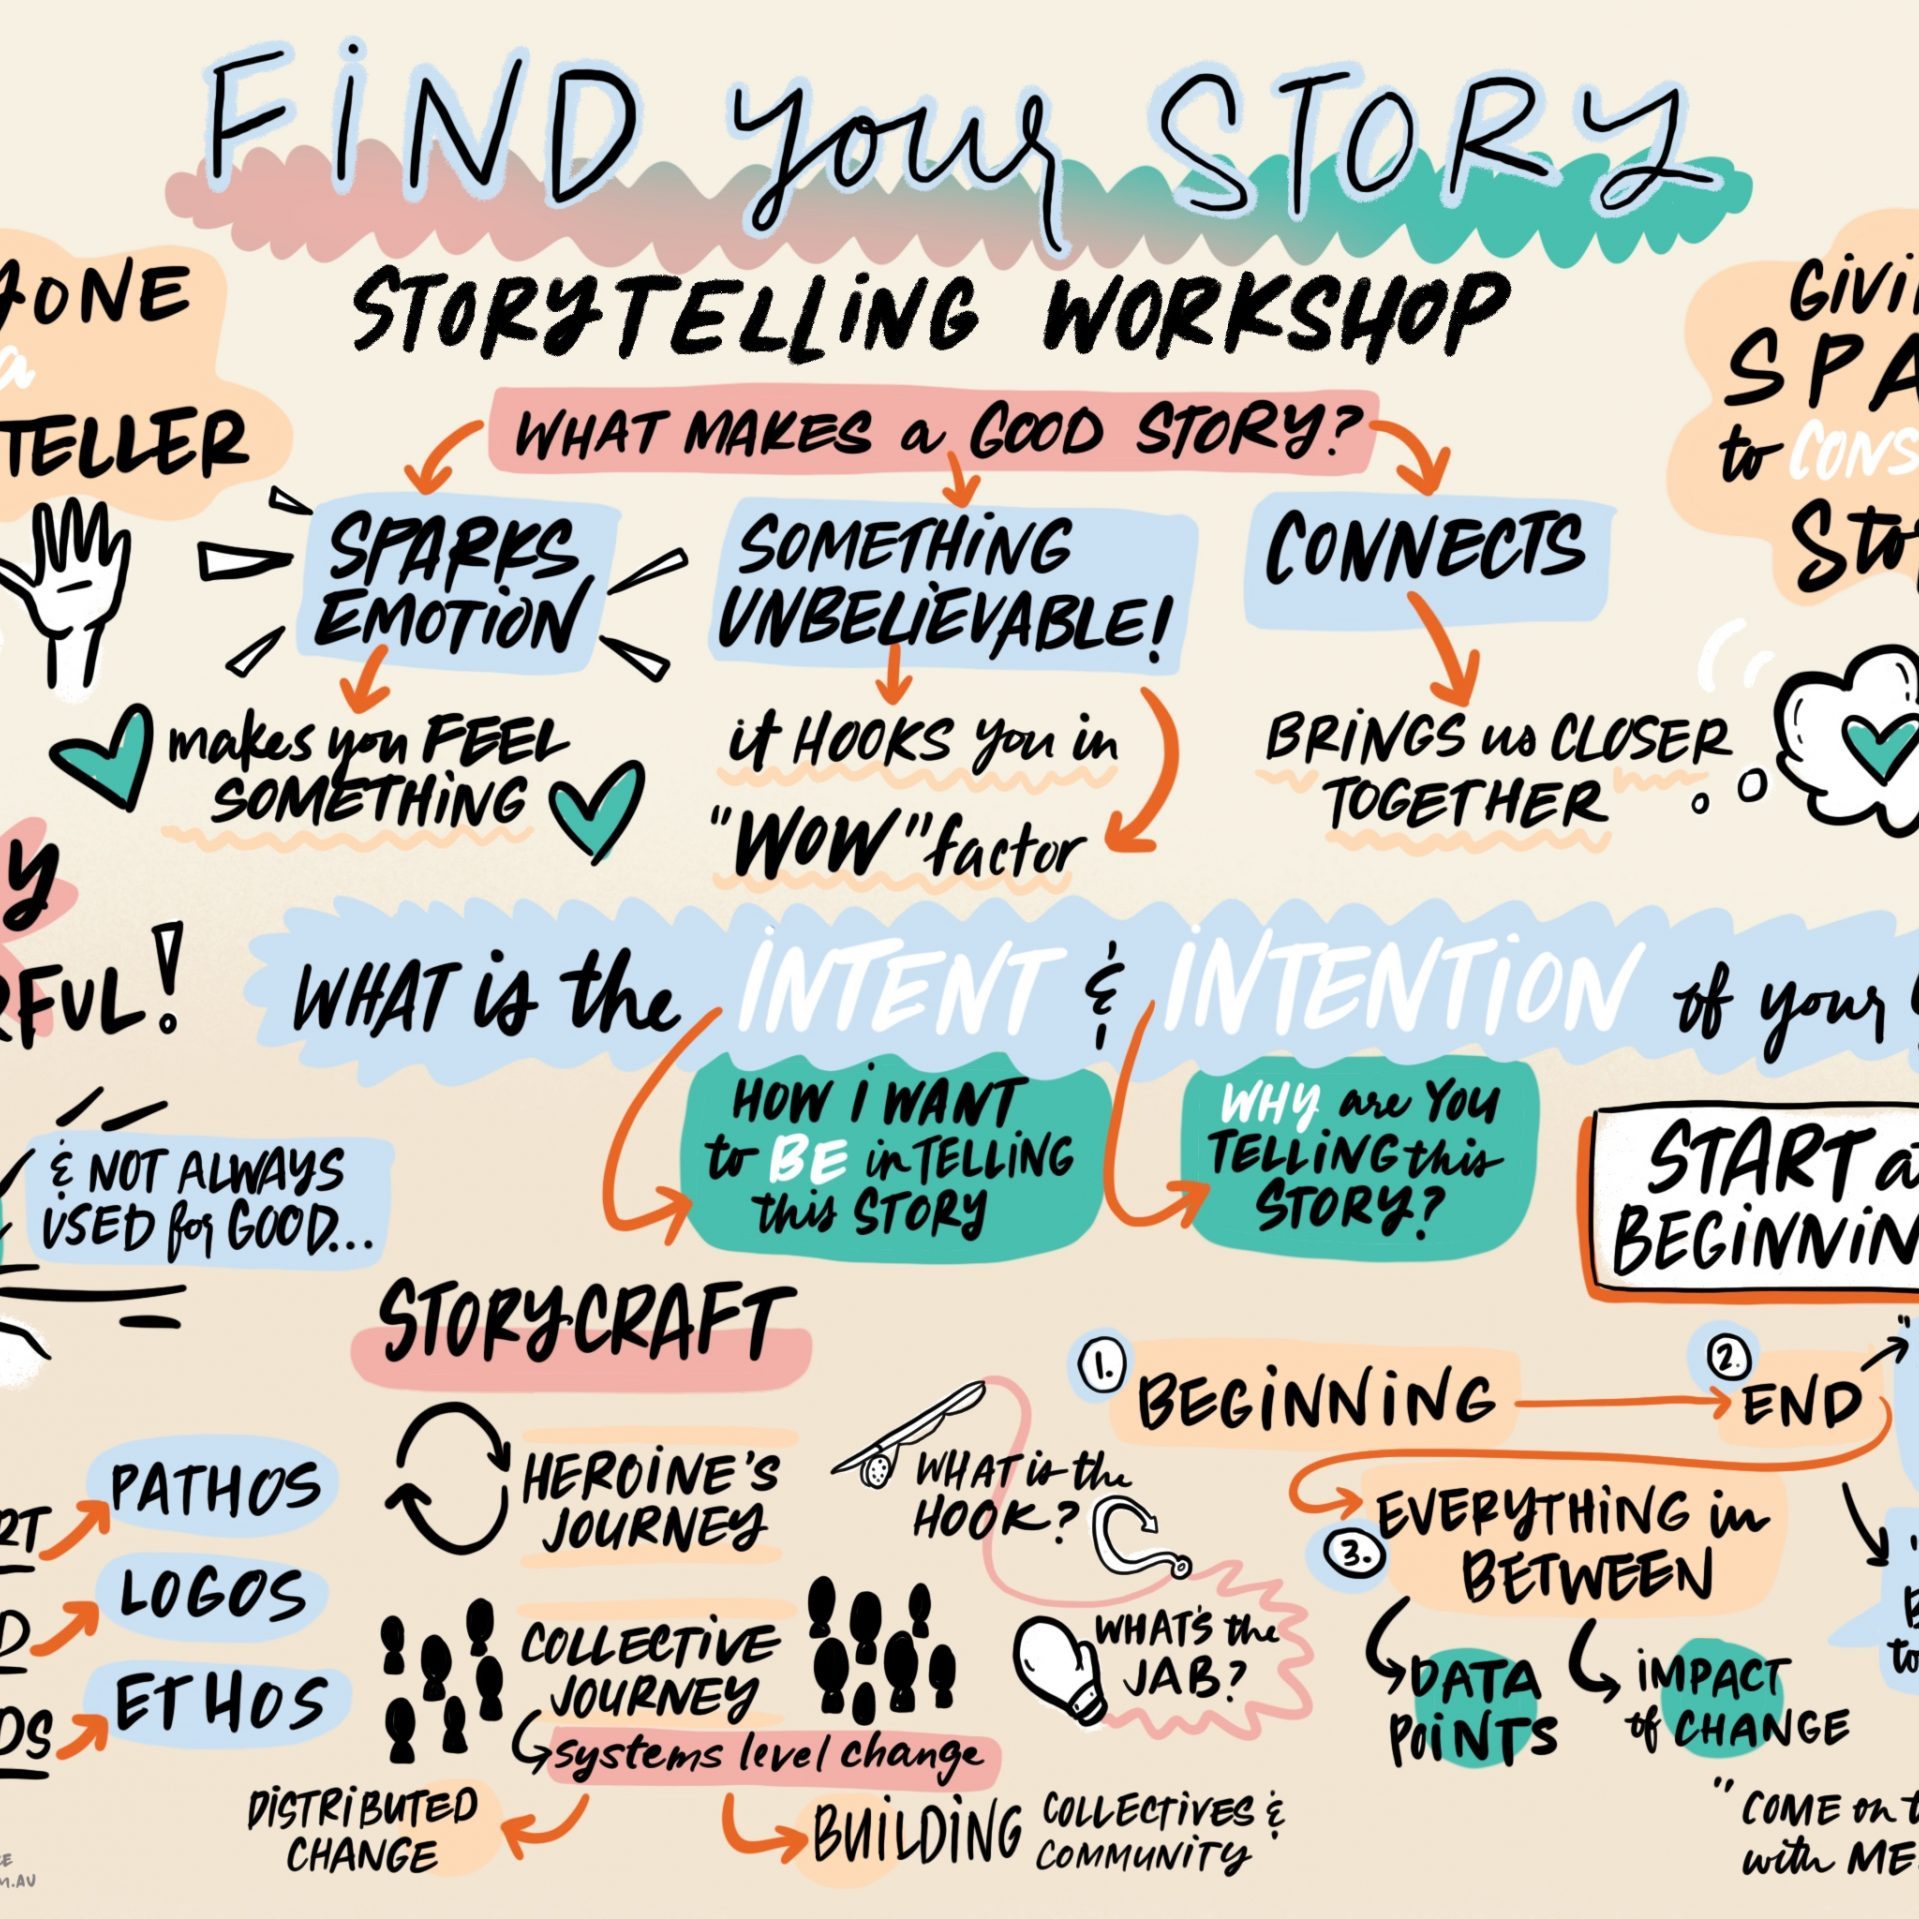 FiND your STORY
STORYTELLiNG WORKSHOP
WHAT MAKES a GOOD STORY?
SPARKS
EMOTiON
makes you FEEL
SOMETHiNG
SOMETHiNG
UNBELiEVABLE!
it HOOKS you in
"WOW" factor
CONNECTS
BRiNGS us CLOSER
TOGETHER
YONE
a
TELLER
GiVi
SPA
to CONS
Sto
y
RFUL!
WHAT is the iNTENT & iNTENTiON of your
HOW i WANT
to BE in TELLiNG
this STORY
WHY are YOU
TELLiNG this
STORY?
& NOT ALWAYS
USED for GOOD...
START at
BEGiNNiN
STORYCRAFT
PATHOS
LOGOS
ETHOS
RT
D
DS
HEROiNE'S
JOURNEY
COLLECTiVE
JOURNEY
systems level change
DiSTRiBUTED
CHANGE
BUiLDiNG COLLECTiVES &
COMMUNiTY
WHAT is the
HOOK?
WHAT'S the
JAB?
1. BEGiNNiNG
2. END
3. EVERYTHiNG in
BETWEEN
DATA
POiNTS
iMPACT
of CHANGE
to
"COME on t
with ME
CE
M.AU